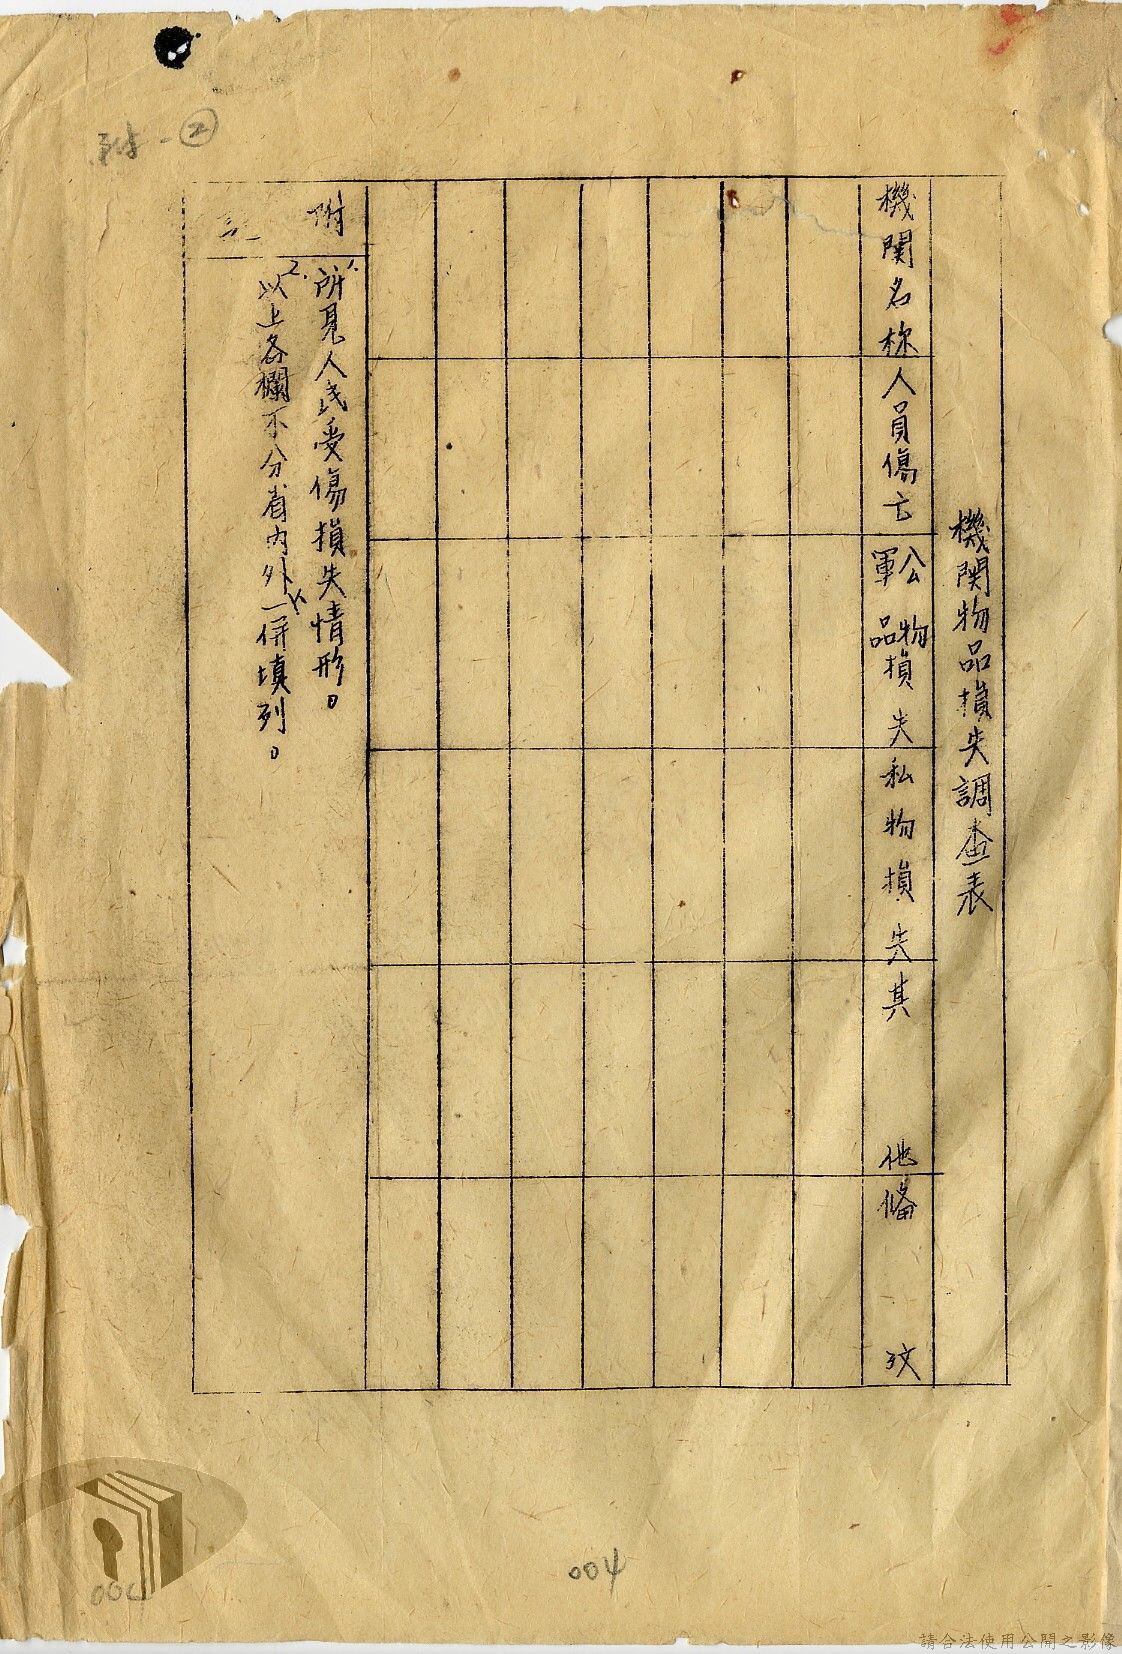 附-②
機関物品損失調查表
機関名称
人員傷亡
公物
軍品
損失
私物損失
其他
俻攷
附
1. 所見人民受傷損失情形。
2. 以上各欄不分省內外一併填列。
004
請合法使用公開之影像